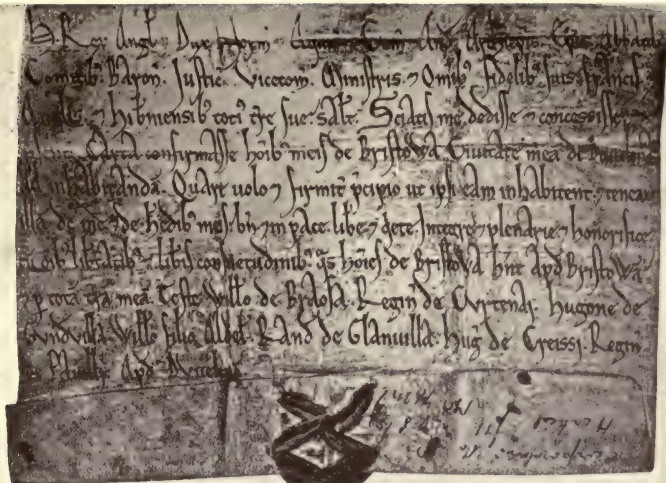 H. Rex Angl. Dux Norm. ⁊ Aquit. ⁊ Com. And. Archiepis. Epis. Abbatib.
Comitib. Baron. Justic. Vicecom. Ministris. ⁊ Omib. fidelib. suis. francis. ⁊
Angl. ⁊ Hibniensib toti tre sue. Salt. Sciatis me dedisse ⁊ concessisse. ⁊
Carta confirmasse hoib meis de Bristowa. Ciuitate mea de
ad inhabitanda. Quare uolo ⁊ firmit pcipio ut ipsi eam inhabitent. ⁊ teneant
illa de me. ⁊ de hedib meis. bn ⁊ in pace. libe. ⁊ q'ete. Integre ⁊ plenarie. ⁊ honorifice
oib libtatib. ⁊ libis consuetudinib. qs hoies de Bristowa hnt apd Bristowa.
⁊ p tota tra mea. Teste. Willo de Braosa. Regin de Curtenai. Hugone de
Gundvilla. Willo filio Aldel. Rand de Glanuilla. Hug de Creissi. Regin
Apd